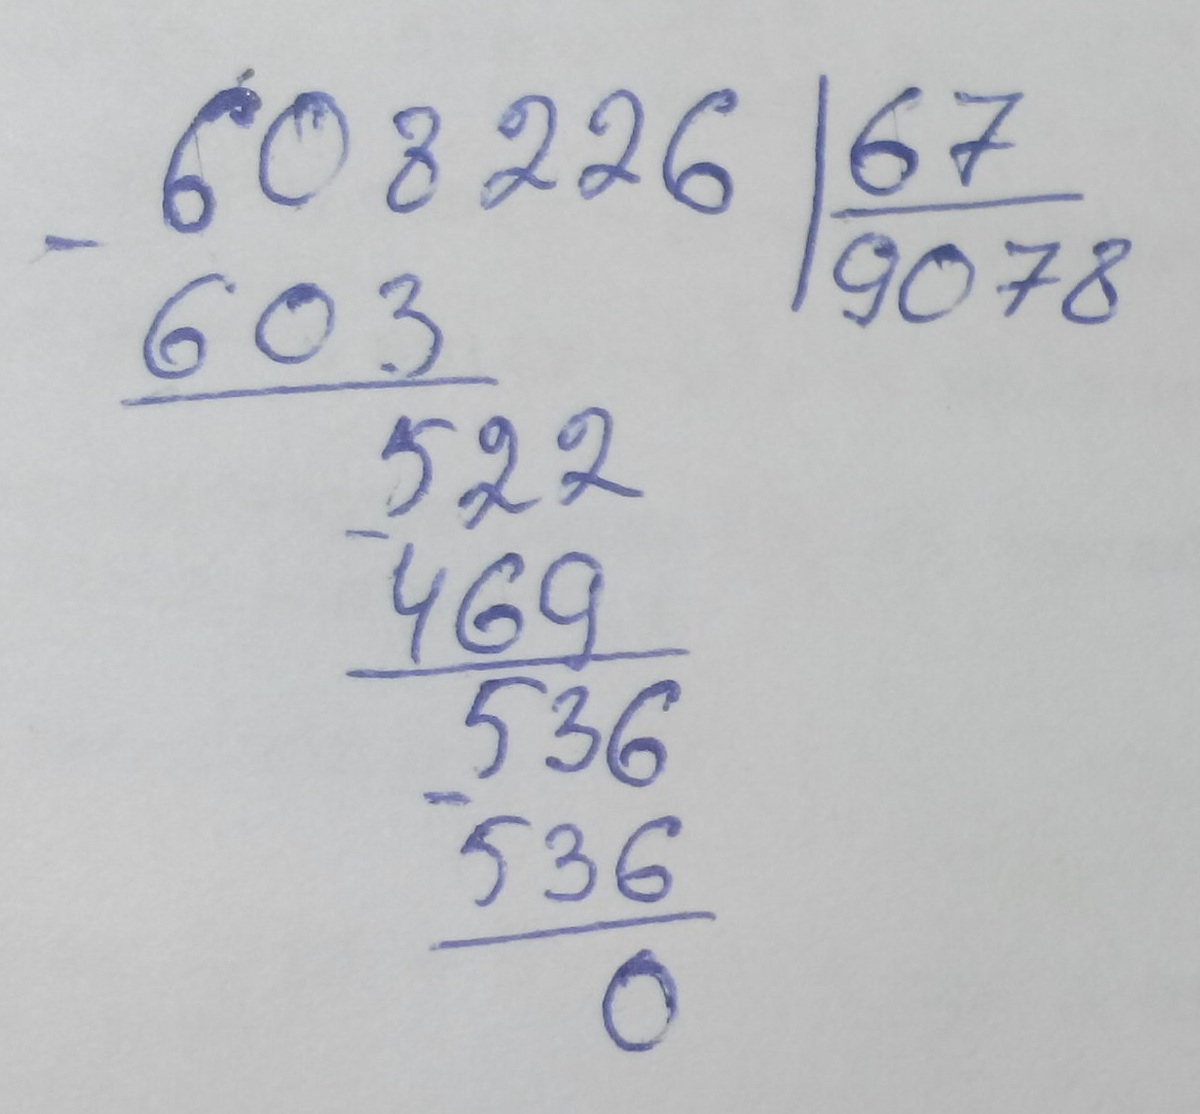 608226 | 67
- 603 | 9078
522
- 469
536
- 536
0